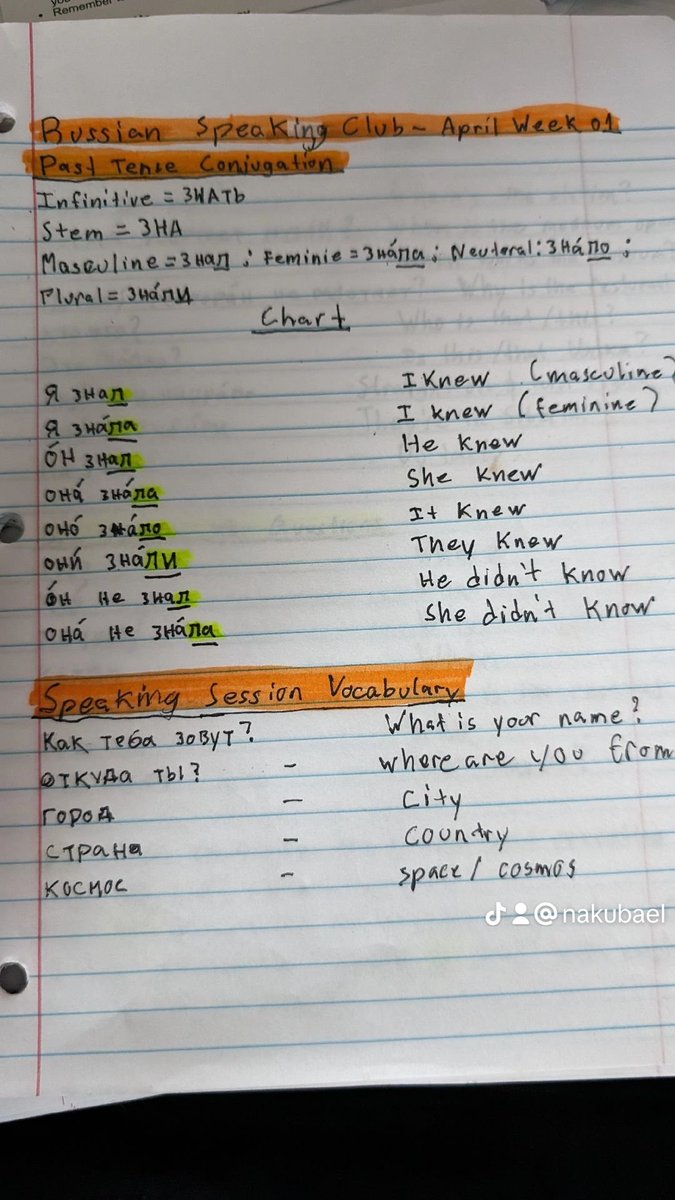 Remember
Russian Speaking Club - April Week 01
Past Tense Conjugation
Infinitive = ЗНАТЬ
Stem = ЗНА
Masculine = знал ; Feminie = знáла ; Neuteral: знáло ;
Plural = знáли
Chart
Я знал I Knew (masculine)
Я знáла I knew (feminine)
óн знал He knew
онá знáла She knew
онó знáло It knew
они́ знáли They Knew
óн не знал He didn't know
онá не знáла She didn't know
Speaking Session Vocabulary
Как теба зовут? What is your name?
откуда ты? - where are you from
город - City
страна - Country
космос - space / cosmos
@nakubael